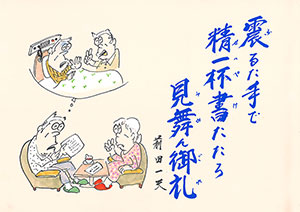 震るた手で
精一杯書たたら
見舞ん御札
前田一天